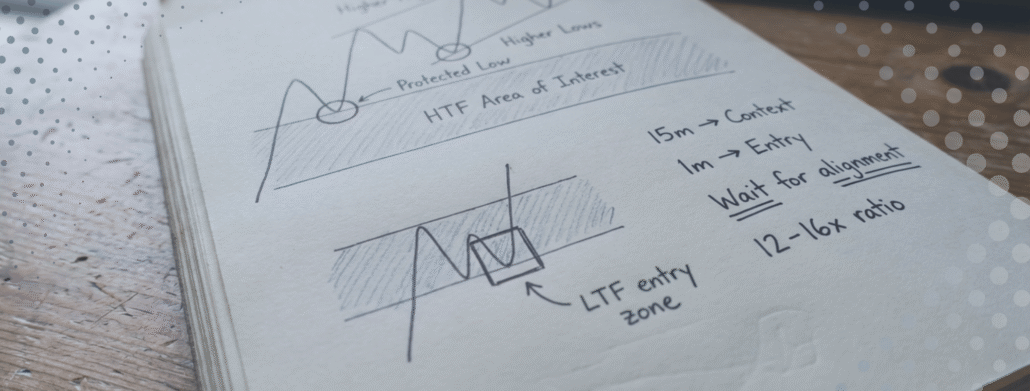 Higher
Higher Lows
Protected Low
HTF Area of Interest
15m → Context
1m → Entry
Wait for alignment
12-16x ratio
LTF entry
zone